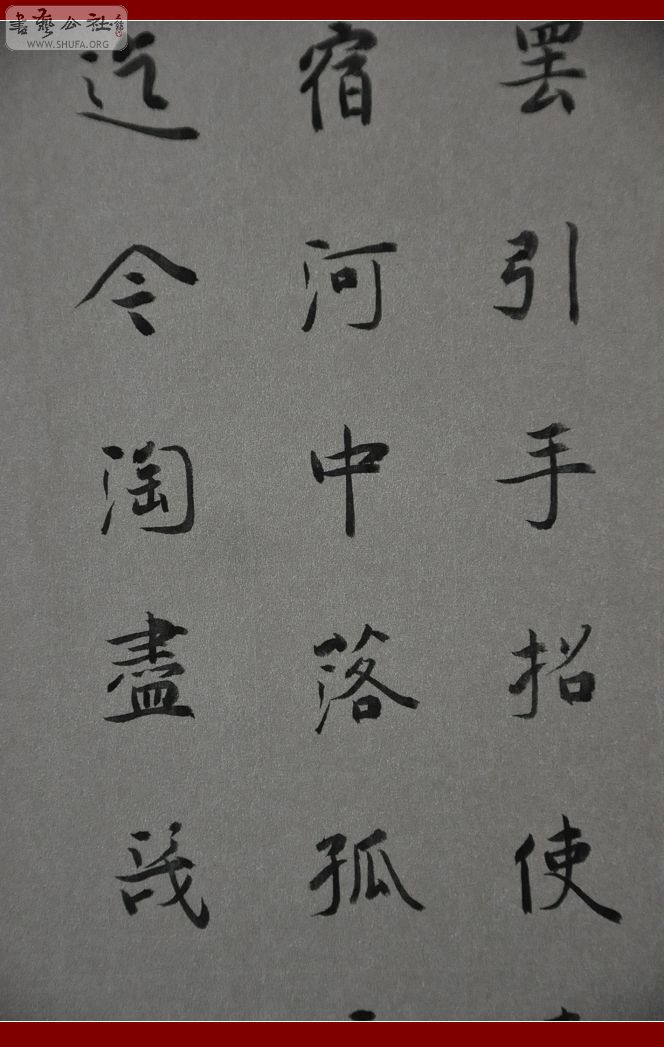 書藝公社
WWW.SHUFA.ORG
罢引手招使
宿河中落孤
迄今淘盡